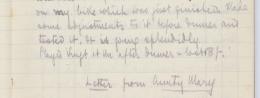 on my bike which was just finished. Made
some adjustments to it before dinner and
tested it. It is going splendidly.
Played it after dinner -
Letter from Aunty Mary